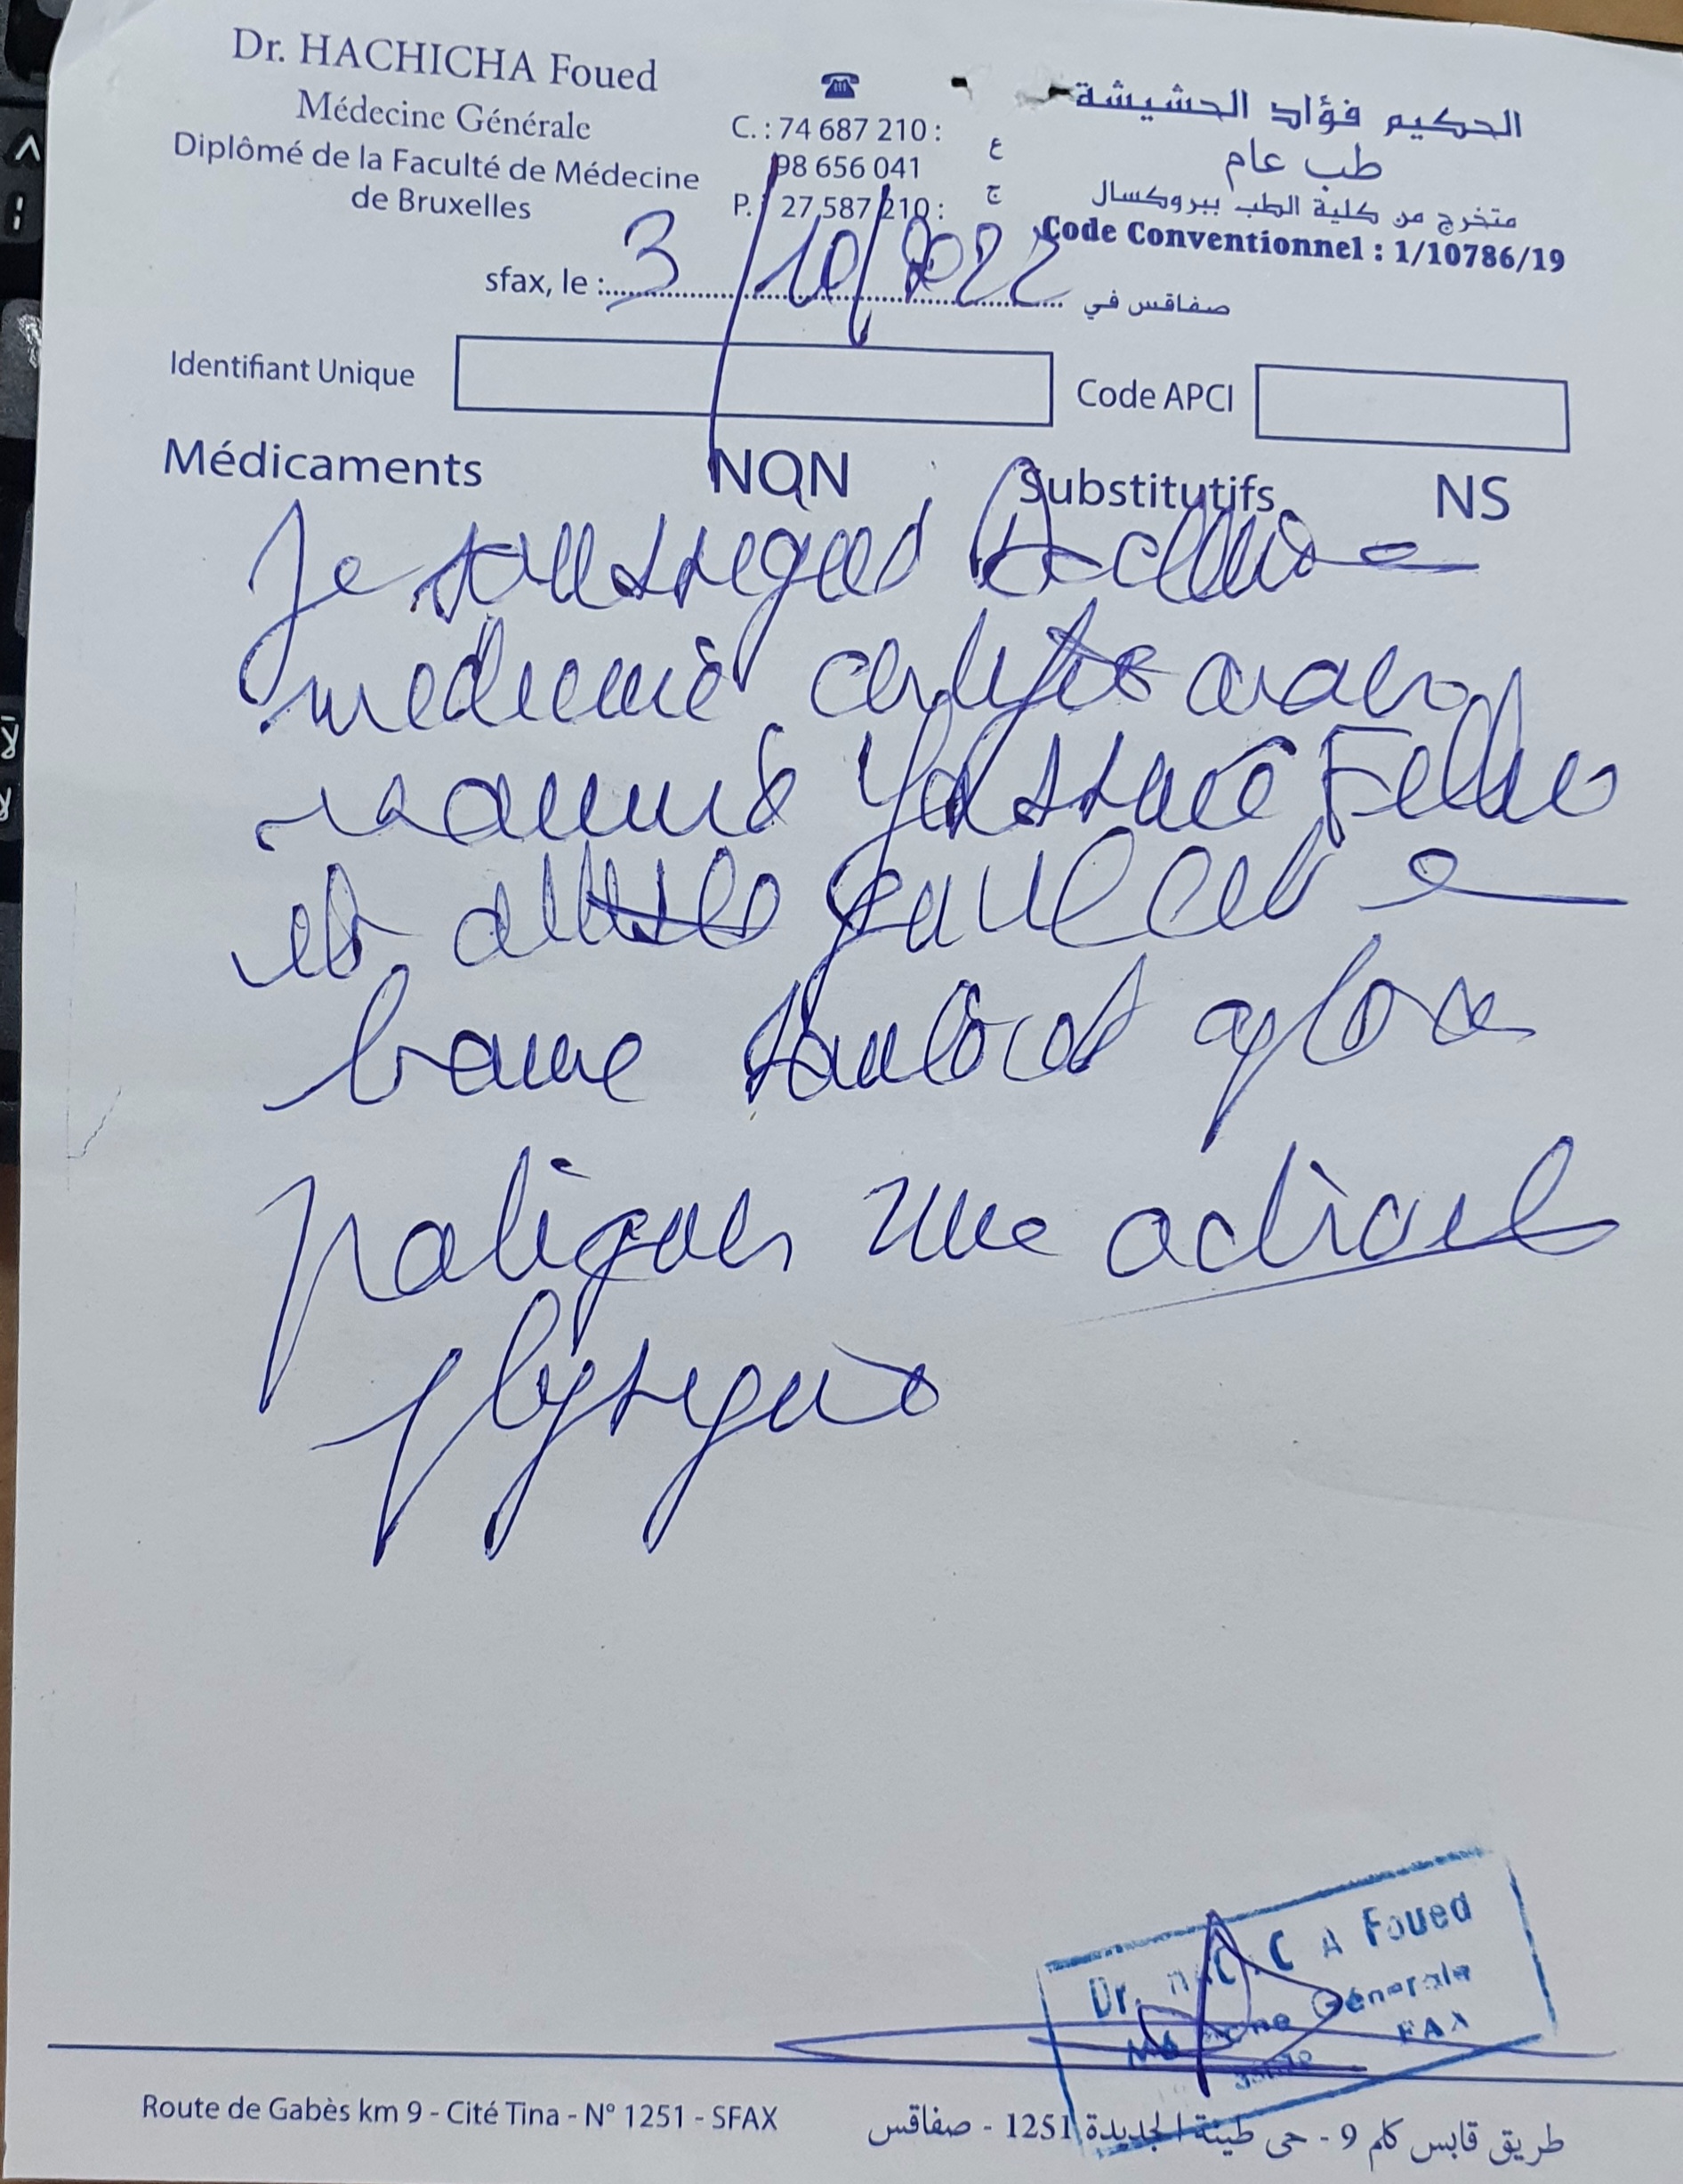 Dr. HACHICHA Foued
Médecine Générale
Diplômé de la Faculté de Médecine
de Bruxelles
C. : 74 687 210 : ع
98 656 041
P. : 27 587 210 : ج
الحكيم فؤاد الحشيشة
طب عام
متخرج من كلية الطب ببروكسال
Code Conventionnel : 1/10786/19
sfax, le : 3/10/2022 صفاقس في
Identifiant Unique Code APCI
Médicaments NON Substitutifs NS
Je soussigné
médecine certifie avoir
examiné Yassine
et atteste qu'il est
bonne santé et
pratiquer une activité
physique
Dr. Foued
Générale
Route de Gabès km 9 - Cité Tina - N° 1251 - SFAX
طريق قابس كلم 9 - حي طينة الجديدة 1251 - صفاقس